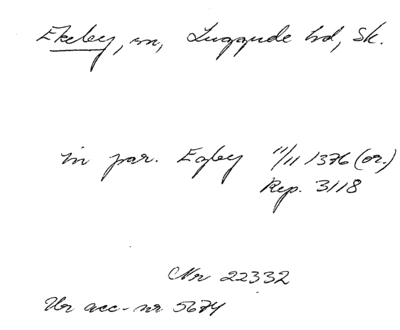 Ekeby, sn, Luggude hd, Sk.
in par. Eqby 11/11 1376 (or.)
Rep. 3118
Nr 22332
Ur acc-nr 5674